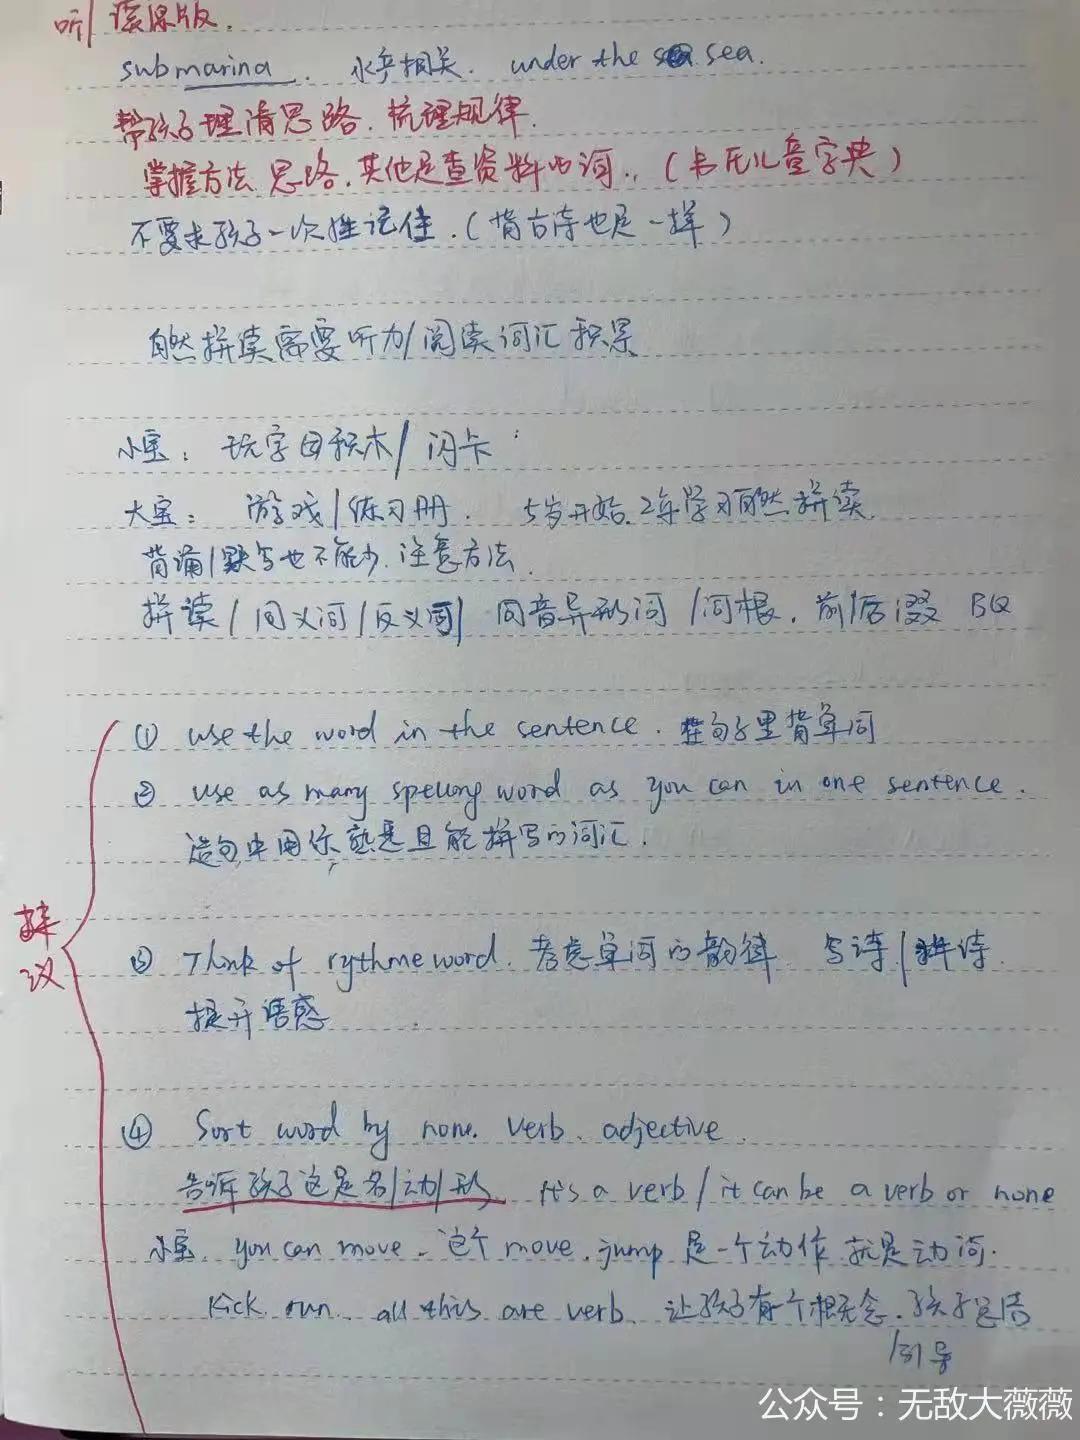 听/读原版.
submarina. 水产相关. under the sea.
帮孩子理清思路. 梳理规律.
掌握方法 思路. 其他是查资料的词.. (书后儿童字典)
不要求孩子一次性记住. (背古诗也是一样)
自然拼读需要听力/阅读词汇积累
小宝: 玩字母积木/闪卡
大宝: 游戏/练习册. 5岁开始. 2年学习自然拼读.
背诵/默写也不能少. 注意方法.
拼读/同义词/反义词/ 同音异形词/词根. 前/后缀 BQ
① use the word in the sentence. 在句子里背单词
② use as many spelling word as you can in one sentence.
造句中用你熟悉且能拼写的词汇.
③ Think of rythme word. 考虑单词的韵律 写诗/拼诗.
提升语感
④ Sort word by none. verb. adjective.
告诉孩子这是名/动/形 it's a verb/it can be a verb or none
小宝. you can move. 这个move. jump 是一个动作 就是动词.
Kick. run. all this are verb. 让孩子有个概念. 孩子总结
/引导
建议
公众号:无敌大薇薇